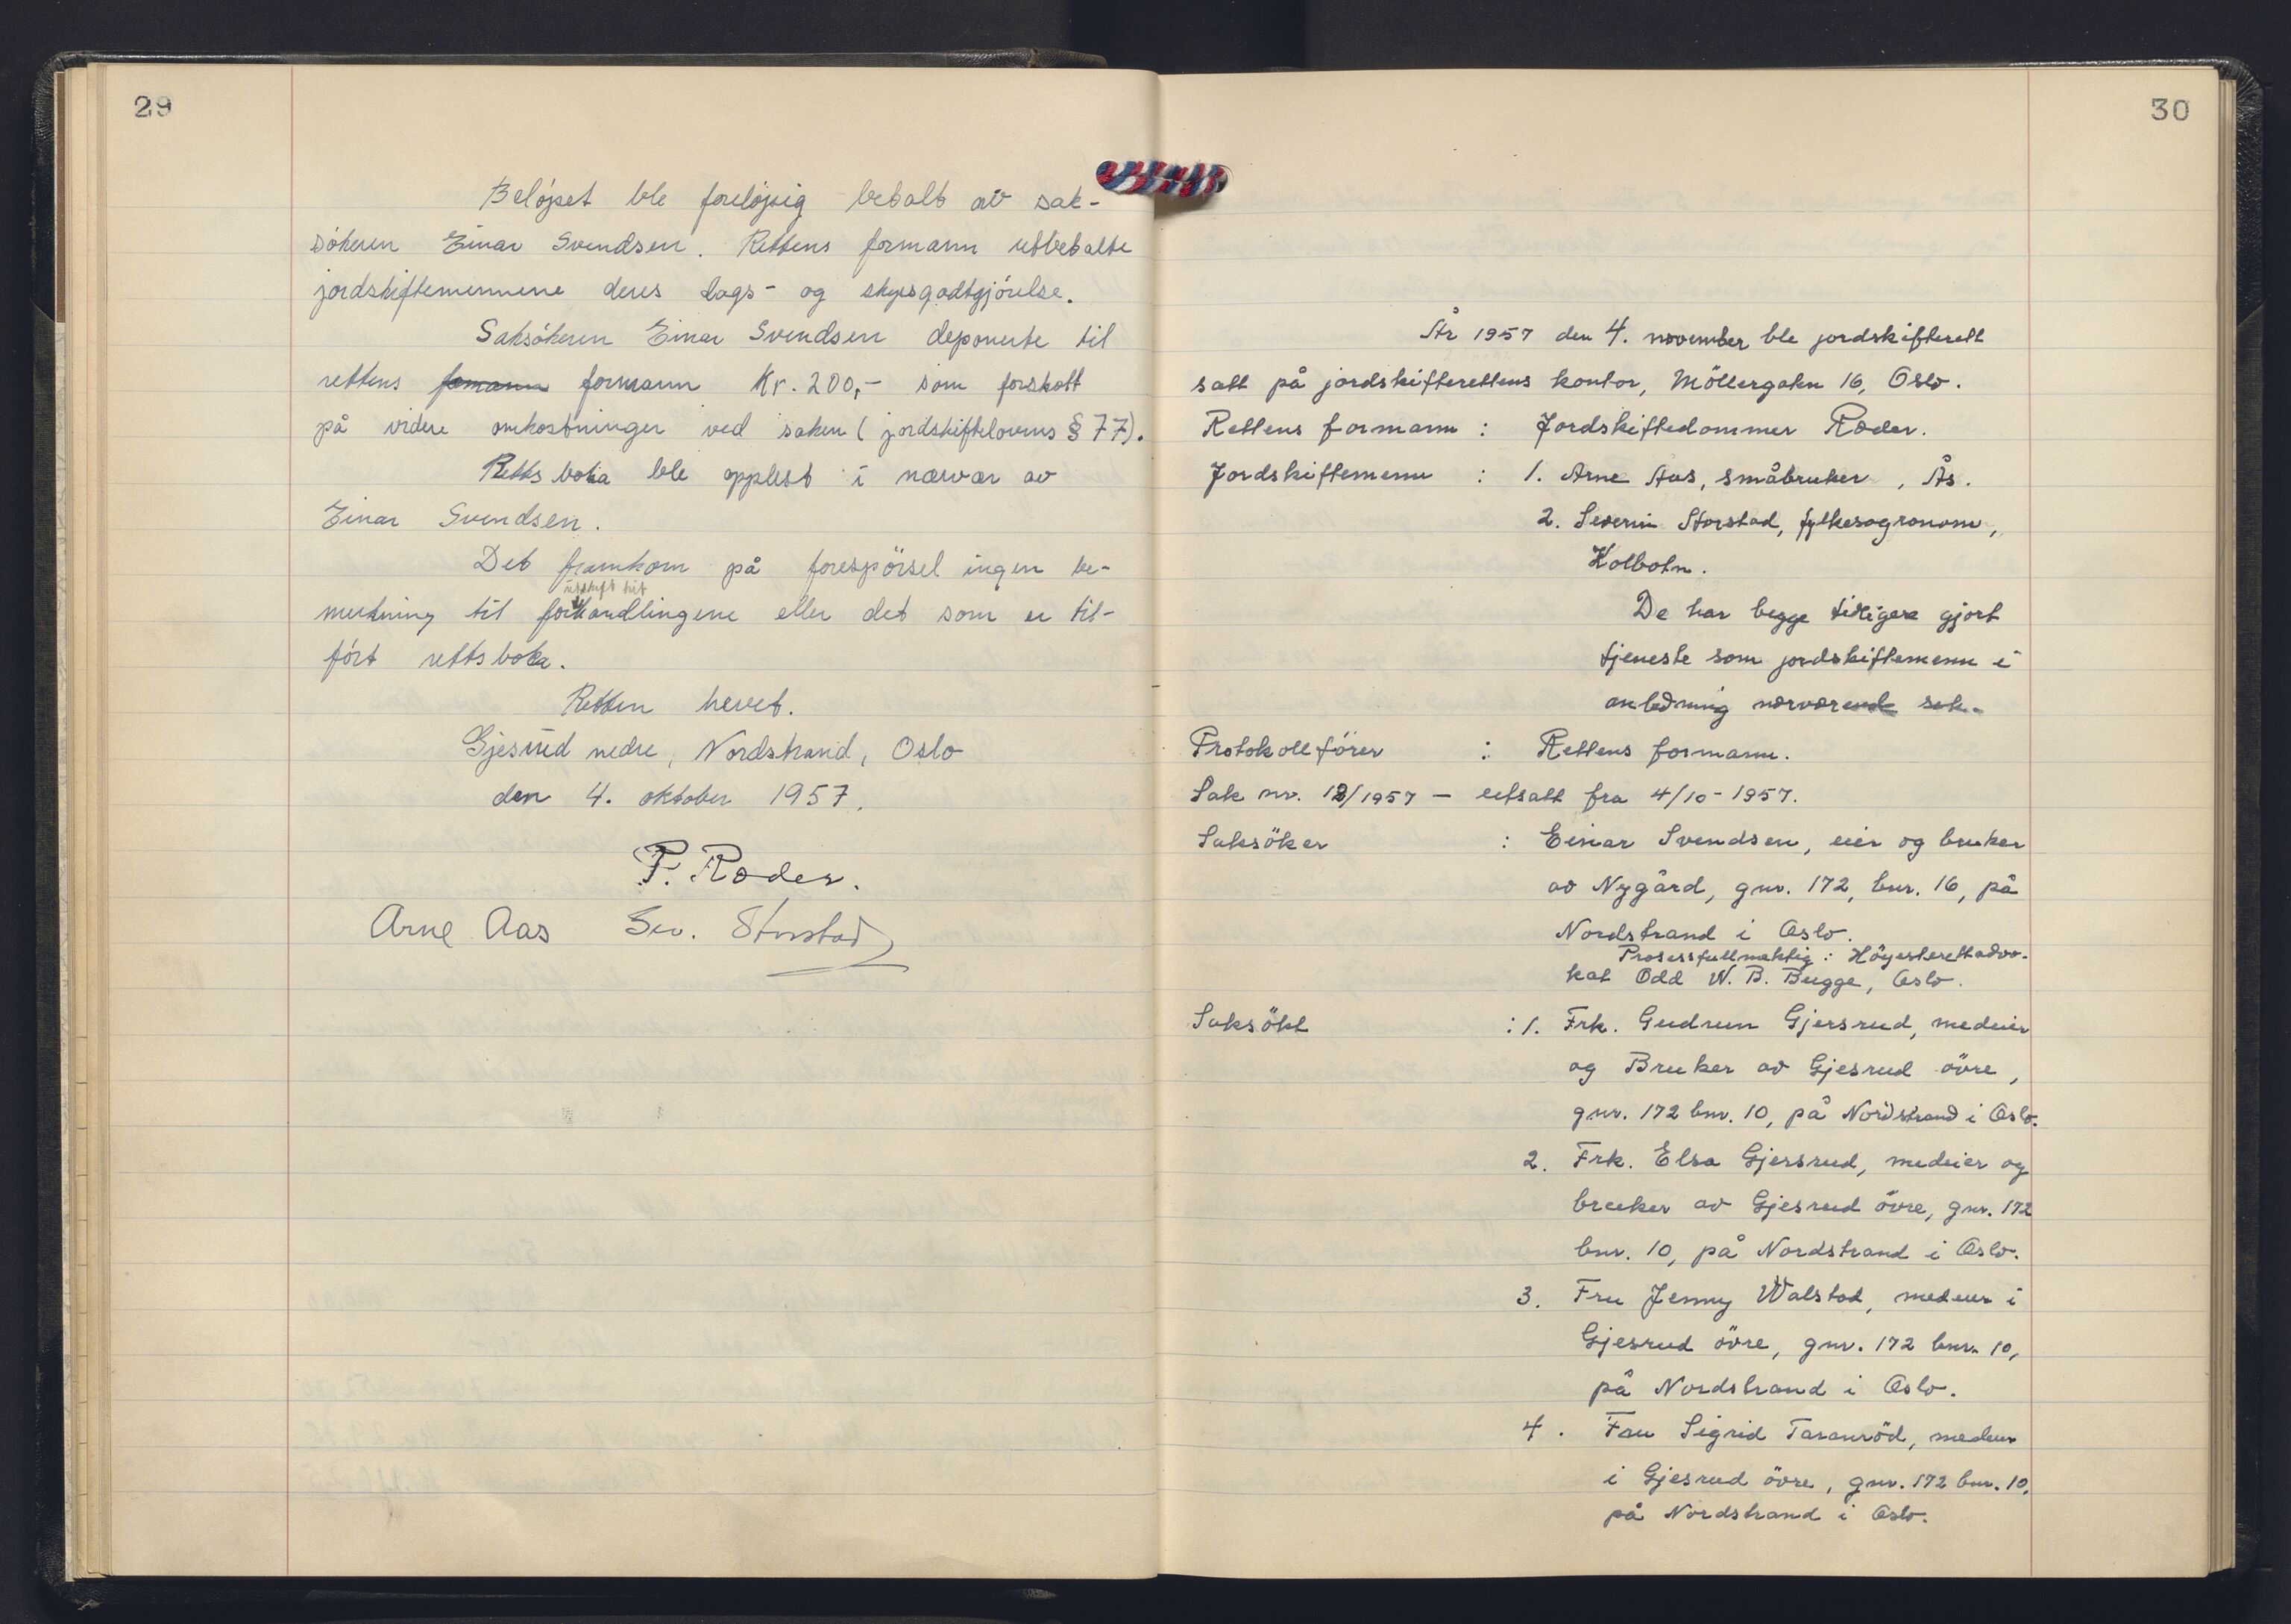 29
Beløpet ble foreløpig betalt av sak-
søkeren Einar Svendsen. Rettens formann utbetalte
jordskiftemennene deres dags- og skyssgodtgjörelse.
Saksökeren Einar Svendsen deponerte til
rettens fomann formann Kr. 200,- som forskott
på videre omkostninger ved saken (jordskiftelovens § 77).
Retts boka ble opplest i nærvær av
Einar Svendsen.
Det framkom på forespörsel ingen be-
merkning til forhandlingene eller det som er til-
ført rettsboka.
Retten hevet.
Gjesrud nedre, Nordstrand, Oslo
den 4. oktober 1957.
P. Røder.
Arne Aas Sev. Storstad
30
År 1957 den 4. november ble jordskifterett
satt på jordskifterettens kontor, Möllergaten 16, Oslo.
Rettens formann : Jordskiftedommer Røder.
Jordskiftemenn : 1. Arne Aas, småbruker, Ås.
2. Severin Storstad, fylkesagronom,
Kolbotn.
De har begge tidligere gjort
tjeneste som jordskiftemenn i
anledning nærværende sak.
Protokollförer : Rettens formann.
Sak nr. 12/1957 — utsatt fra 4/10-1957.
Saksöker : Einar Svendsen, eier og bruker
av Nygård, gnr. 172, bnr. 16, på
Nordstrand i Oslo.
Prosessfullmektig : Höyesterettadvo-
kat Odd W. B. Bugge, Oslo.
Saksökt : 1. Frk. Gudrun Gjersrud, medeier
og Bruker av Gjesrud övre,
gnr. 172 bnr. 10, på Nordstrand i Oslo.
2. Frk. Elsa Gjersrud, medeier og
bruker av Gjesrud övre, gnr. 172
bnr. 10, på Nordstrand i Oslo.
3. Fru Jenny Walstad, medeier i
Gjesrud övre, gnr. 172 bnr. 10,
på Nordstrand i Oslo.
4. Fru Sigrid Taranröd, medeier
i Gjesrud övre, gnr. 172 bnr. 10,
på Nordstrand i Oslo.